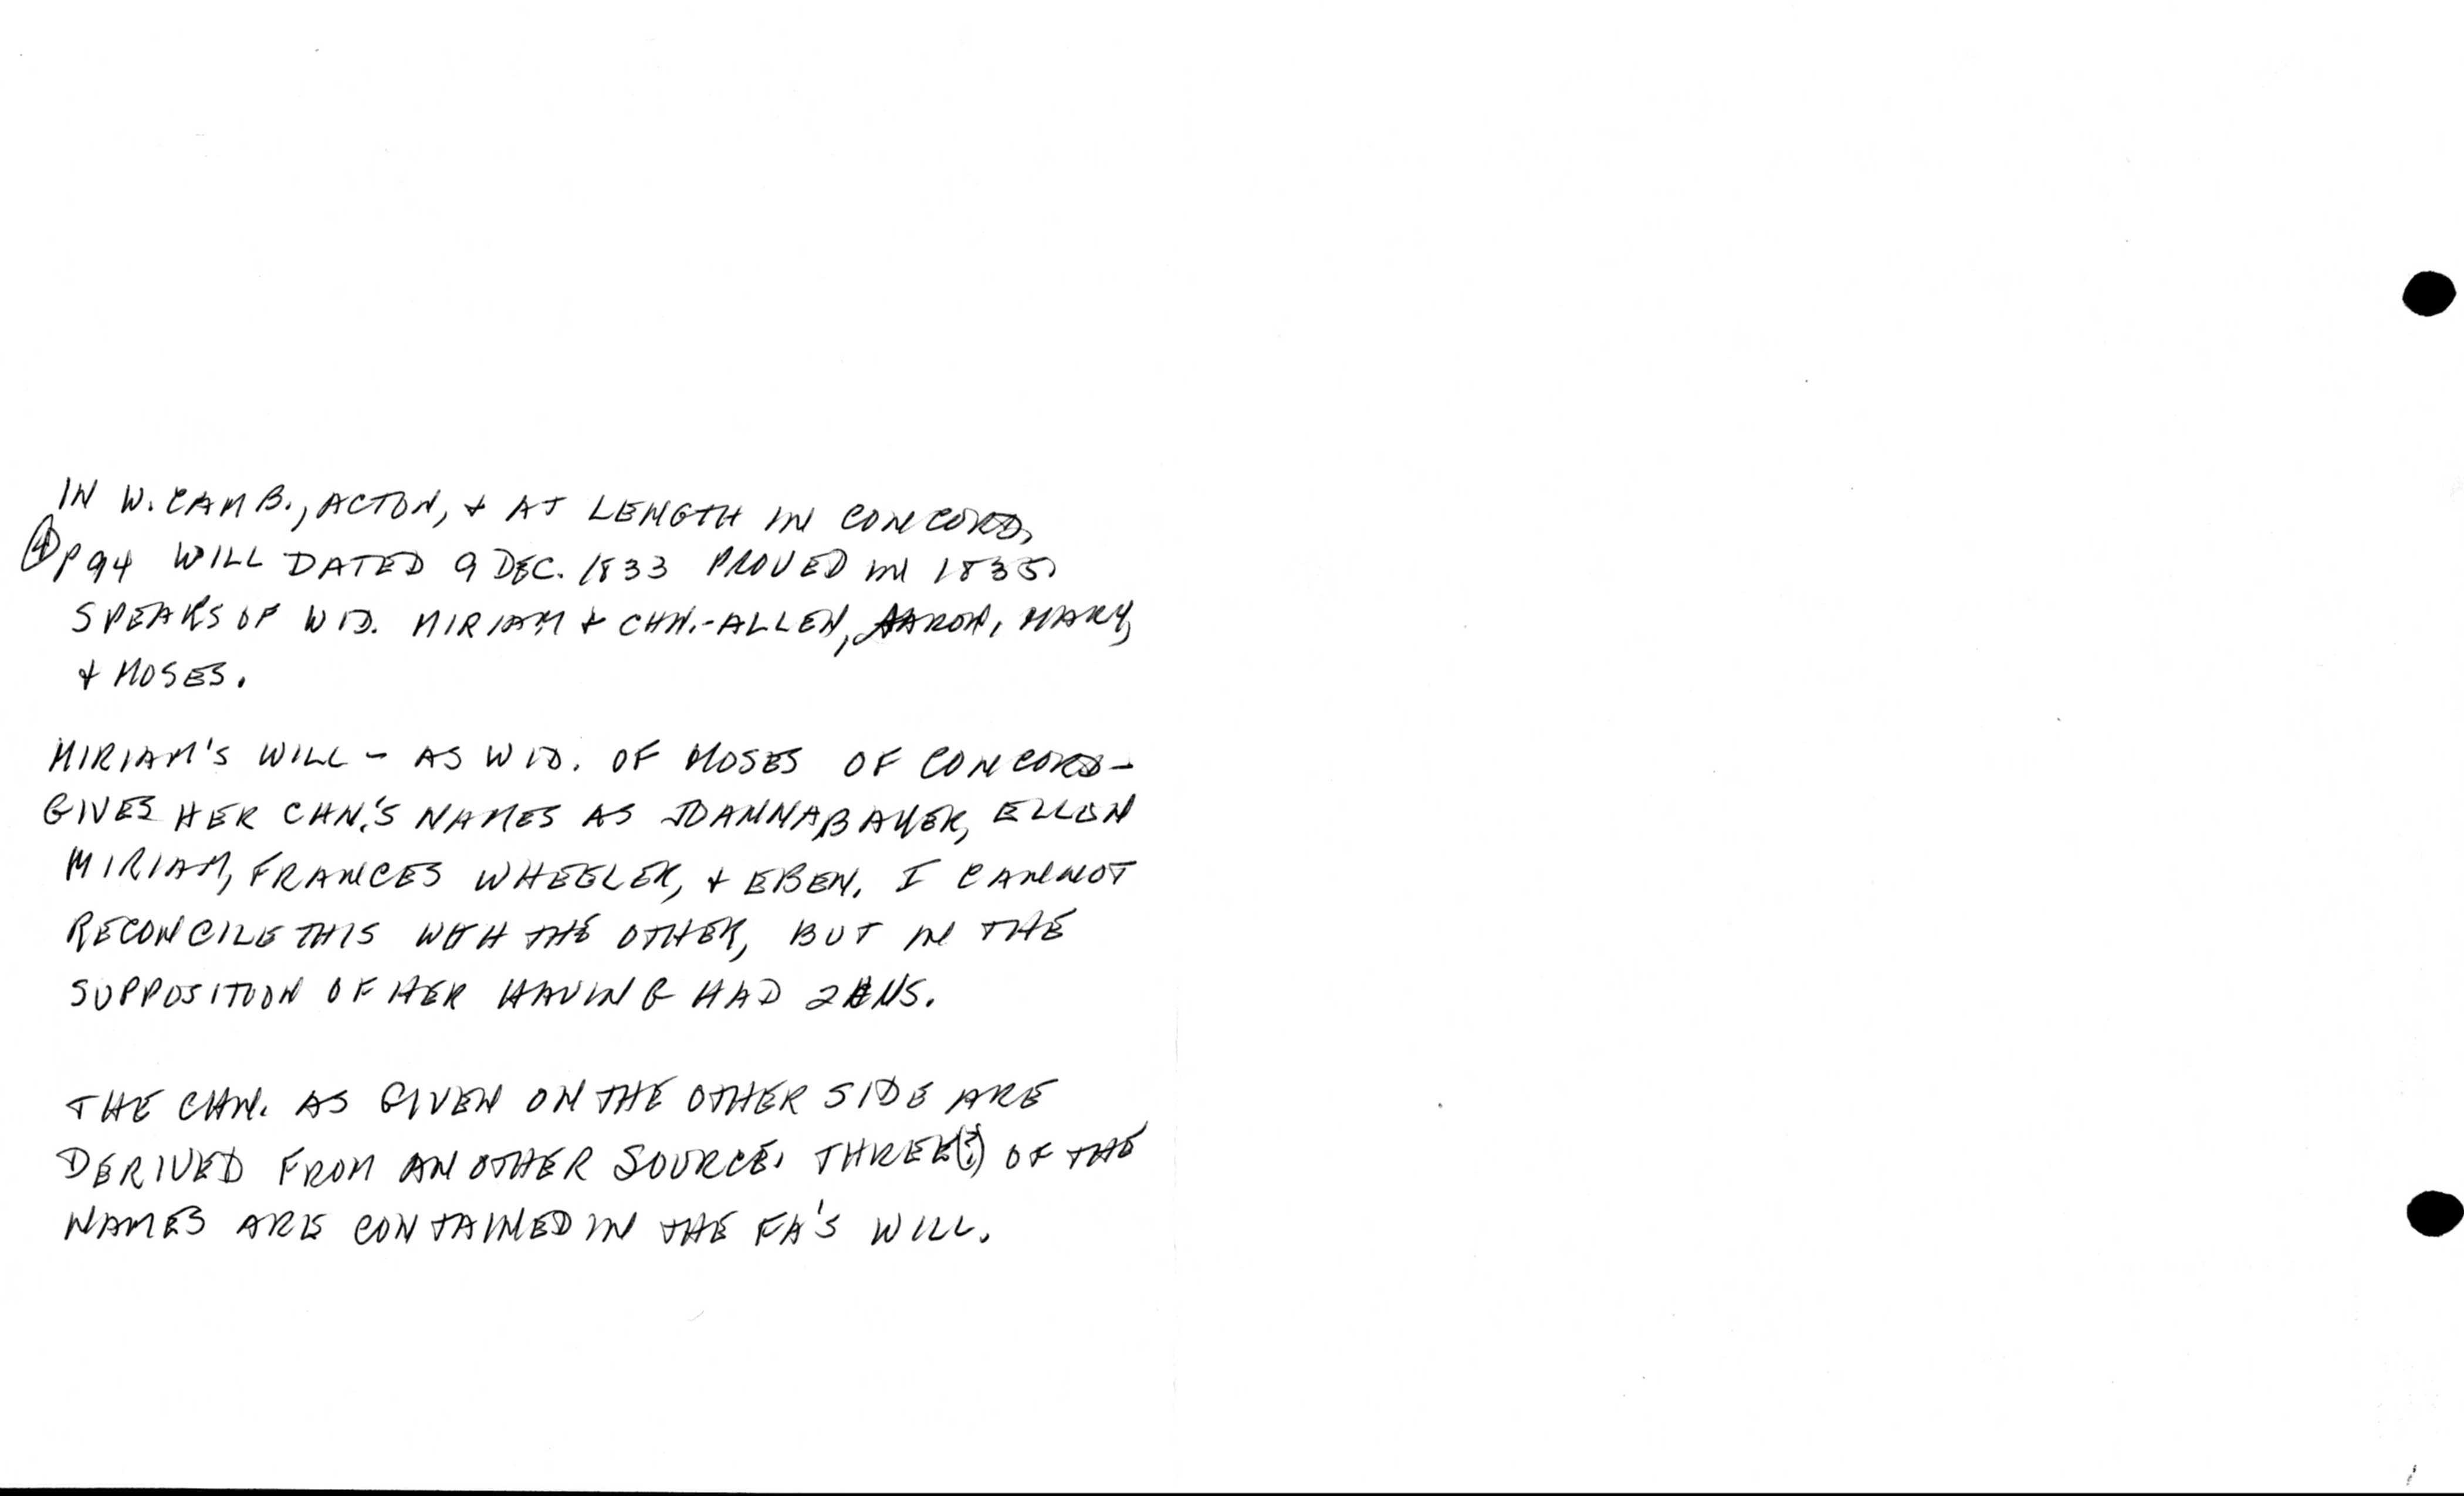 IN W. CAMB., ACTON, & AT LENGTH IN CONCORD,
④ P 94 WILL DATED 9 DEC. 1833 PROVED IN 1835.
SPEAKS OF WID. MIRIAM & CHN.-ALLEN, AARON, MARY,
& MOSES.
MIRIAM'S WILL - AS WID. OF MOSES OF CONCORD -
GIVES HER CHN.'S NAMES AS JOANNA BAKER, ELLEN
MIRIAM, FRANCES WHEELER, & EBEN. I CANNOT
RECONCILE THIS WITH THE OTHER, BUT IN THE
SUPPOSITION OF HER HAVING HAD 2
THE CHN. AS GIVEN ON THE OTHER SIDE ARE
DERIVED FROM ANOTHER SOURCE. THREE(?) OF THE
NAMES ARE CONTAINED IN THE FA'S WILL.